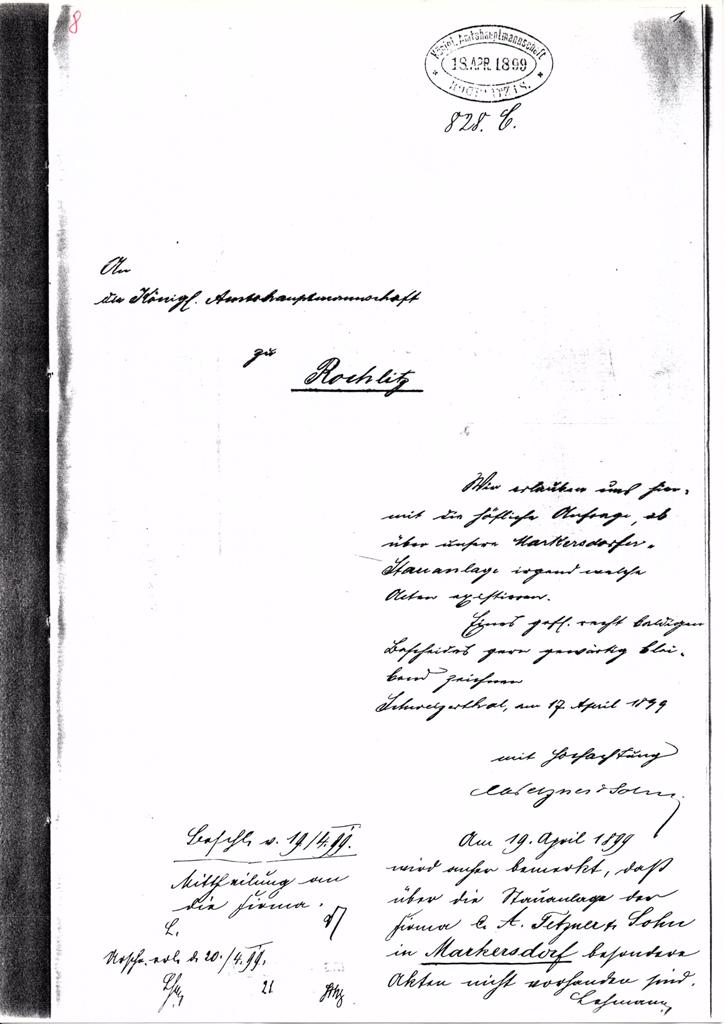 8
1
Königl. Amtshauptmannschaft
18. APR. 1899
828. C.
An
die Königl. Amtshauptmannschaft
zu
Rochlitz
Wir erlauben uns hier-
mit die höfliche Anfrage, ob
über unsere Markersdorfer-
Stauanlage irgend welche
Acten existieren.
Eines gefl. recht baldigen
Bescheides gern gewärtig blei-
bend zeichnen
Schweizerthal, am 17. April 1899
mit Hochachtung
Beschl. v. 19/4.99.
Mittheilung an
die Firma.
L.
20./4.99.
21
Am 19. April 1899
wird anher bemerkt, daß
über die Stauanlage der
Firma C. A. Tetzner & Sohn
in Markersdorf besondere
Akten nicht vorhanden sind.
Lehmann